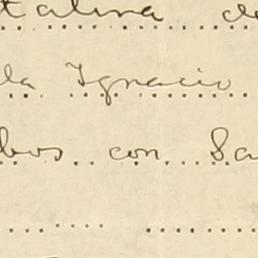 talina de
la Ignacio
bos con Sa